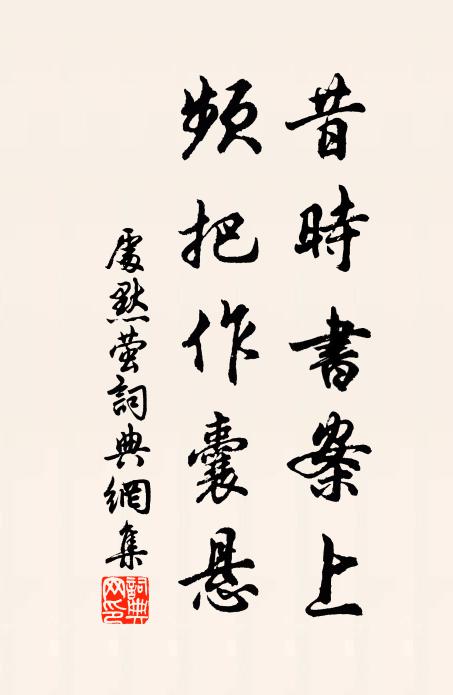 昔時書案上
頻把作囊悬
處默萤詞典網集
詞典網印